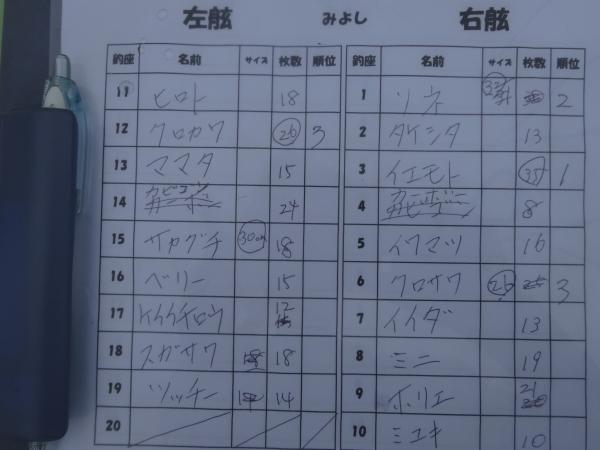 左舷 みよし 右舷
釣座 名前 サイズ 枚数 順位 釣座 名前 サイズ 枚数 順位
11 ヒロト 18 1 ソネ 2
12 クロカワ 26 3 2 タケシタ 13
13 ママタ 15 3 イエモト 35 1
14 カピゴン 24 4 カーボー 8
15 サカグチ 30cm 18 5 イワマツ 16
16 ベリー 15 6 クロサワ 26 3
17 12 7 イイダ 13
18 スガサワ 18 8 ミニ 19
19 ツッチー 14 9 ホリエ 21
20 10 ミユキ 10